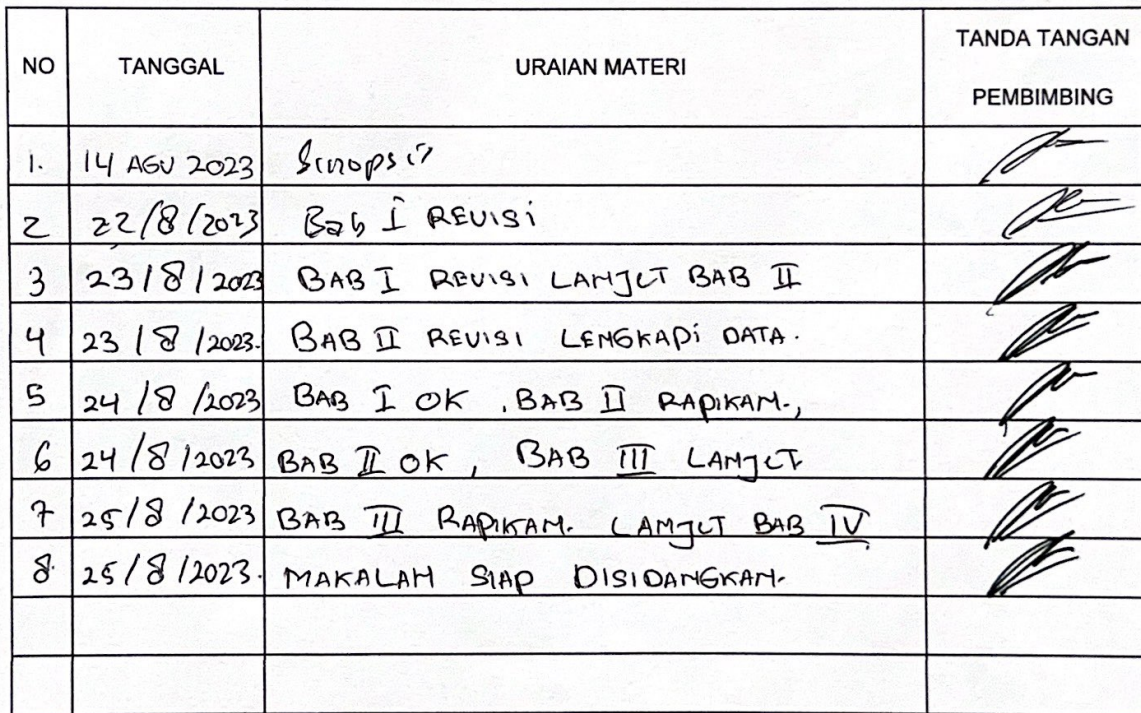 NO TANGGAL URAIAN MATERI TANDA TANGAN PEMBIMBING
1. 14 AGU 2023 Sinopsis
2 22/8/2023 Bab I REVISI
3 23/8/2023 BAB I REVISI LANJUT BAB II
4 23/8/2023. BAB II REVISI LENGKAPI DATA.
5 24/8/2023 BAB I OK, BAB II RAPIKAN.,
6 24/8/2023 BAB II OK, BAB III LANJUT
7 25/8/2023 BAB III RAPIKAN. LANJUT BAB IV
8. 25/8/2023. MAKALAH SIAP DISIDANGKAN.